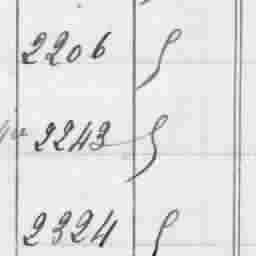 2206
2243
2324